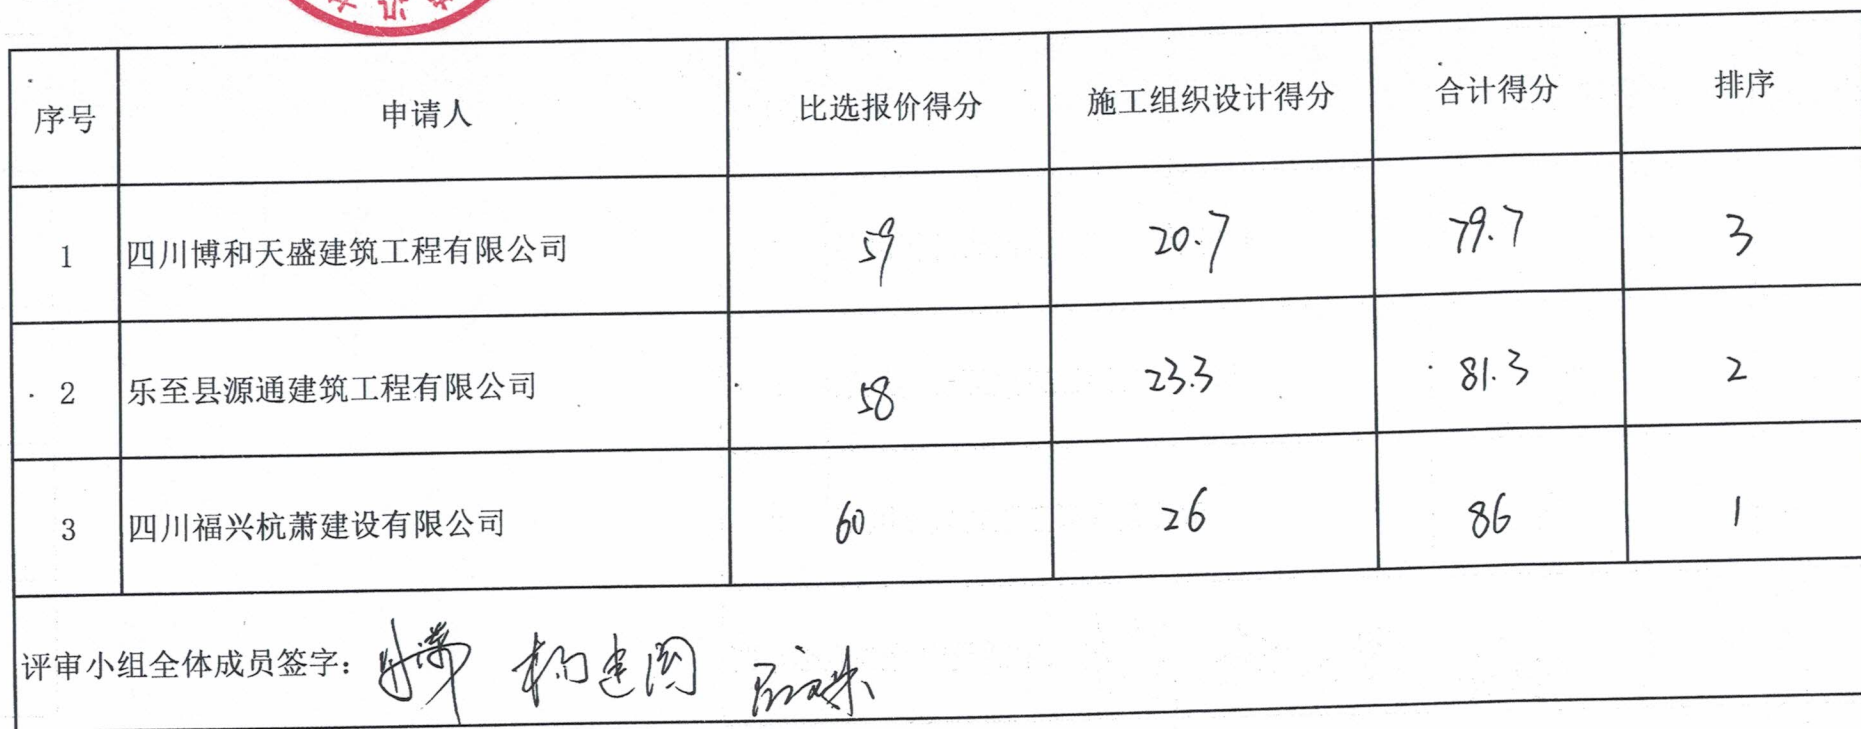 序号 申请人 比选报价得分 施工组织设计得分 合计得分 排序
1 四川博和天盛建筑工程有限公司 59 20.7 79.7 3
2 乐至县源通建筑工程有限公司 58 23.3 81.3 2
3 四川福兴杭萧建设有限公司 60 26 86 1
评审小组全体成员签字：